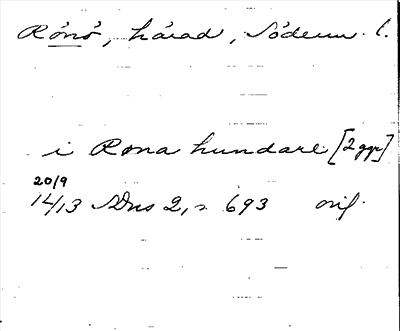 Rönö, härad, Söderm. l.
i Rona hundare [2 ggr]
20/9
14/13 SDns 2, s 693 orig.